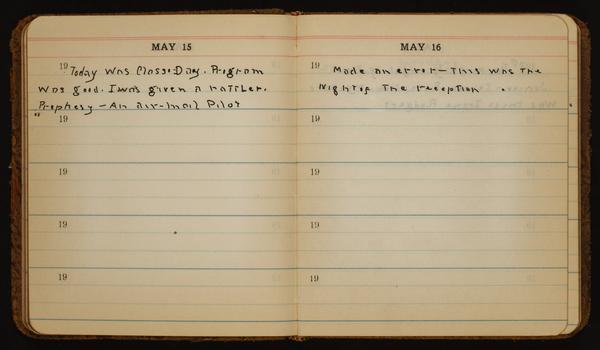 MAY 15
19 Today was Class-Day. Program
was good. I was given a rattler.
Prophesy - An air-mail Pilot
"
19
19
19
19
MAY 16
19 Made an error - This was the
night of the reception.
19
19
19
19